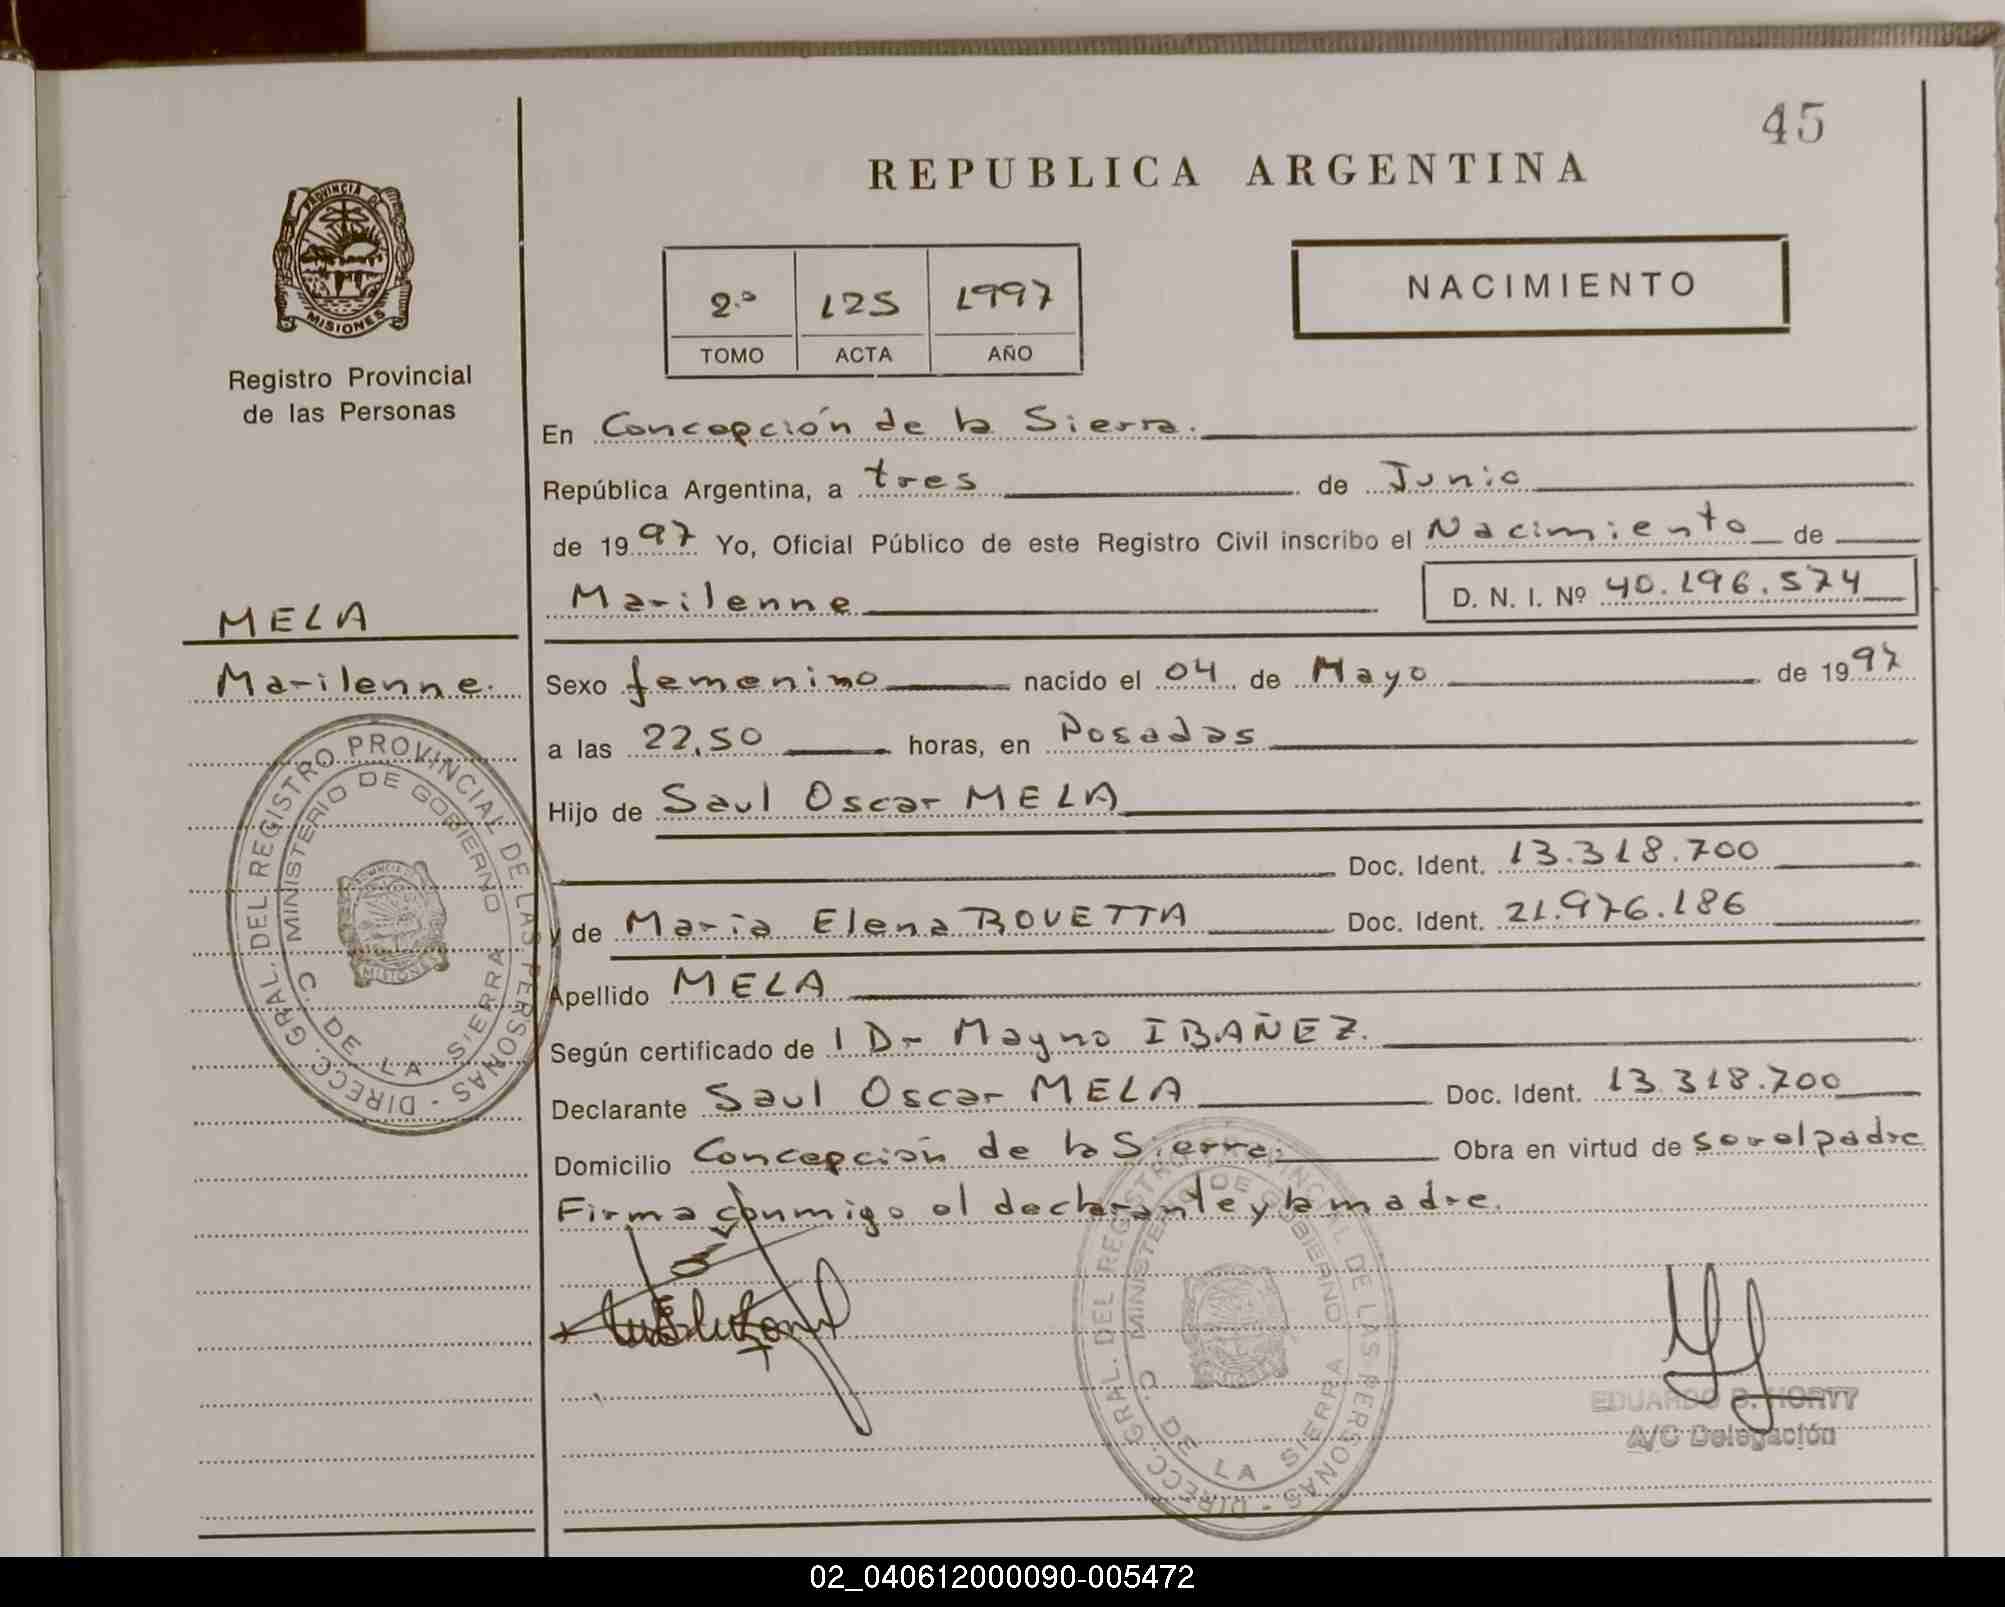 45
REPUBLICA ARGENTINA
PROVINCIA DE
MISIONES
Registro Provincial
de las Personas
2.º 125 1997
TOMO ACTA AÑO
NACIMIENTO
En Concepción de la Sierra.
República Argentina, a tres de Junio
de 1997 Yo, Oficial Público de este Registro Civil inscribo el Nacimiento de
Marilenne D. N. I. Nº 40.196.574
MELA
Marilenne.
Sexo femenino nacido el 04 de Mayo de 1997
a las 22,50 horas, en Posadas
Hijo de Saul Oscar MELA
Doc. Ident. 13.318.700
y de Maria Elena BOVETTA Doc. Ident. 21.976.186
Apellido MELA
Según certificado de l Dr Mayno IBAÑEZ.
Declarante Saul Oscar MELA Doc. Ident. 13.318.700
Domicilio Concepción de la Sierra. Obra en virtud de ser el padre
Firma conmigo el declarante y la madre.
DIRECC. GRAL. DEL REGISTRO PROVINCIAL DE LAS PERSONAS -
MINISTERIO DE GOBIERNO
C. DE LA SIERRA
DIRECC. GRAL. DEL REGISTRO PROVINCIAL DE LAS PERSONAS -
MINISTERIO DE GOBIERNO
C. DE LA SIERRA
EDUARDO
A/C Delegación
02_040612000090-005472